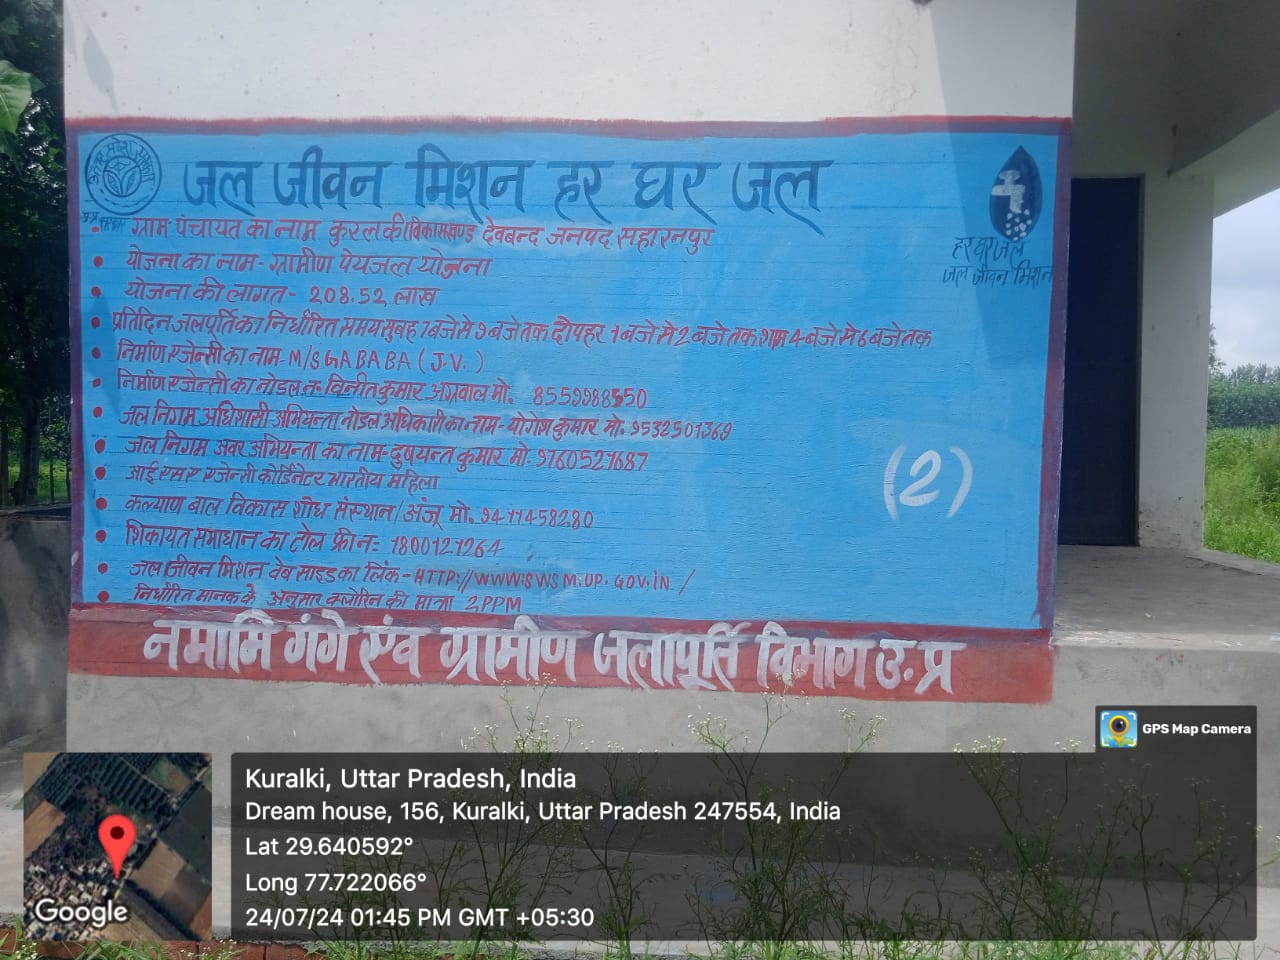 उत्तर प्रदेश सरकार
जल जीवन मिशन हर घर जल
हर घर जल
जल जीवन मिशन
• ग्राम पंचायत का नाम कुरलकी विकासखण्ड देवबन्द जनपद सहारनपुर
• योजना का नाम- ग्रामीण पेयजल योजना
• योजना की लागत- 208.52 लाख
• प्रतिदिन जलपूर्ति का निर्धारित समय सुबह 7 बजे से 9 बजे तक दोपहर 1 बजे से 2 बजे तक शाम 4 बजे से 6 बजे तक
• निर्माण एजेन्सी का नाम- M/S GA BABA (J.V.)
• निर्माण एजेन्सी का नोडल न- विनीत कुमार अग्रवाल मो. 8559988550
• जल निगम अधिशासी अभियन्ता नोडल अधिकारी का नाम- योगेश कुमार मो. 9532501369
• जल निगम अवर अभियन्ता का नाम- दुषयन्त कुमार मो. 9760527687
• आई एस ए एजेन्सी कोर्डिनेटर भारतीय महिला
• कल्याण बाल विकास शोध संस्थान/अंजू मो. 9411458280
• शिकायत समाधान का टोल फ्री न: 1800121264
• जल जीवन मिशन वेब साइड का लिंक- HTTP://WWW.SWSM.UP.GOV.IN/
• निर्धारित मानक के अनुसार क्लोरिन की मात्रा 2 PPM
(2)
नमामि गंगे एंव ग्रामीण जलापूर्ति विभाग उ.प्र
GPS Map Camera
Kuralki, Uttar Pradesh, India
Dream house, 156, Kuralki, Uttar Pradesh 247554, India
Lat 29.640592°
Long 77.722066°
24/07/24 01:45 PM GMT +05:30
Google